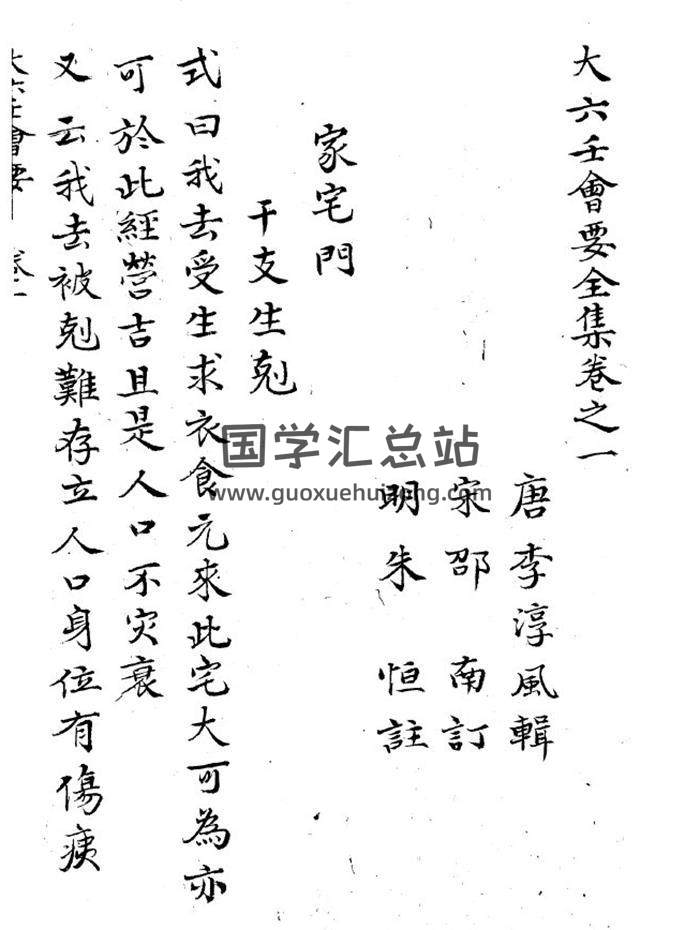 大六壬會要全集卷之一
唐李淳風輯
宋邵南訂
明朱恒註
家宅門
干支生剋
式曰我去受生求衣食元來此宅大可為亦
可於此經營吉且是人口不灾衰
又云我去被剋難存立人口身位有傷痍
大六壬會要 卷一
国学汇总站
www.guoxuehuizong.com